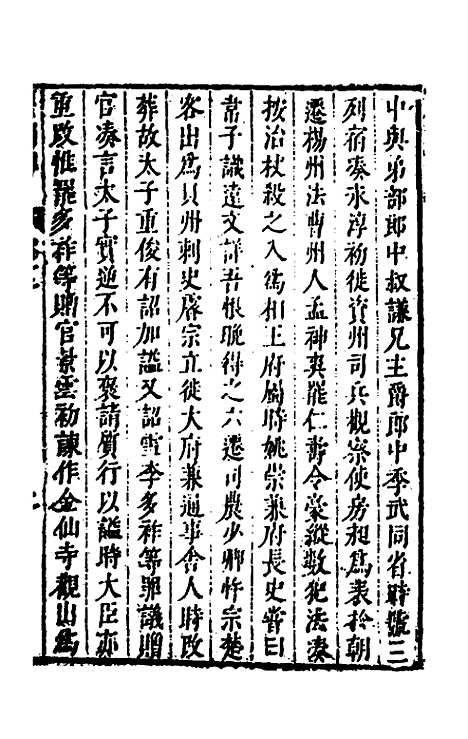 中與弟部郎中叔謙兄主爵郎中季武同省時號三
列宿奏永淳初徙資州司兵觀察使房昶爲表於朝
遷楊州法曹州人孟神爽罷仁壽令豪縱數犯法湊
按治杖殺之入爲相王府屬時姚崇兼府長史嘗曰
常子識遠文詳吾恨晚得之六遷司農少卿忤宗楚
客出爲貝州刺史睿宗立徙大府兼通事舍人時改
葬故太子重俊有詔加謚又詔雪李多祚等罪議贈
官湊言太子實逆不可以褒請質行以謚時大臣亦
重改惟罷多祚等贈官景雲初諫作金仙寺觀山爲